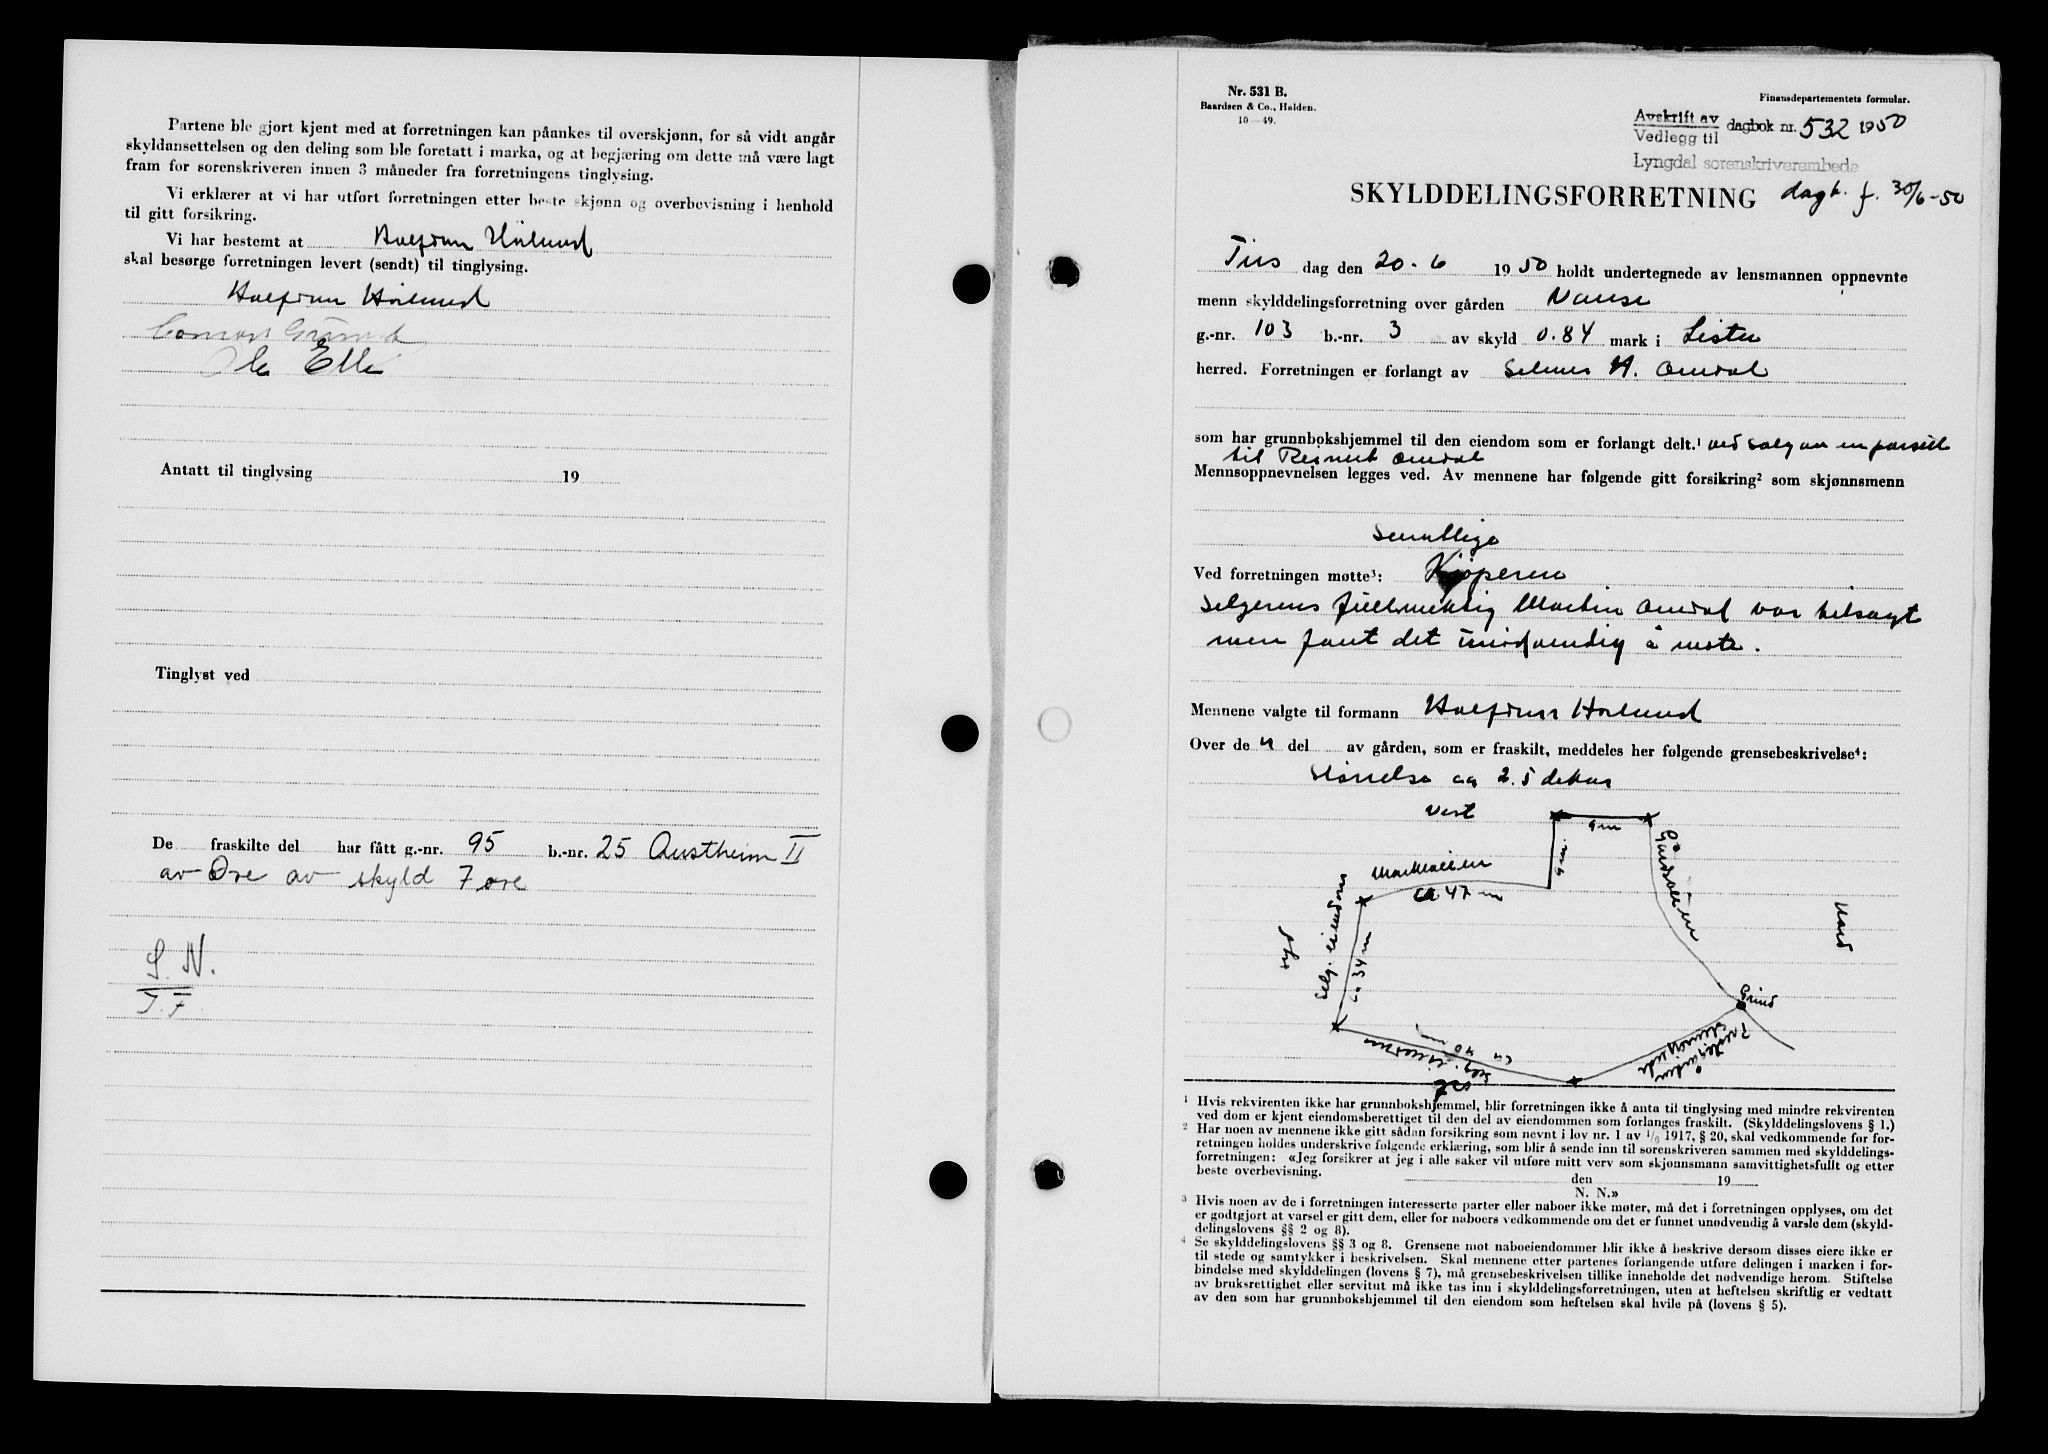 Partene ble gjort kjent med at forretningen kan påankes til overskjønn, for så vidt angår
skyldansettelsen og den deling som ble foretatt i marka, og at begjæring om dette må være lagt
fram for sorenskriveren innen 3 måneder fra forretningens tinglysing.
Vi erklærer at vi har utført forretningen etter beste skjønn og overbevisning i henhold
til gitt forsikring.
Vi har bestemt at
skal besørge forretningen levert (sendt) til tinglysing.
Ole Elle
Antatt til tinglysing 19
Tinglyst ved
De fraskilte del har fått g.-nr. 95 b.-nr. 25 Austheim II
av Øre av skyld 7 øre
S. N.
J. F.
Nr. 531 B.
Baardsen & Co., Halden.
10—49.
Finansdepartementets formular.
Avskrift av
Vedlegg til
dagbok nr. 532 1950
Lyngdal sorenskriverembede
SKYLDDELINGSFORRETNING dagb. f. 30/6-50
Tirs dag den 20-6 1950 holdt undertegnede av lensmannen oppnevnte
menn skylddelingsforretning over gården Vanse
g.-nr. 103 b.-nr. 3 av skyld 0.84 mark i Lista
herred. Forretningen er forlangt av Selmer H. Omdal
som har grunnbokshjemmel til den eiendom som er forlangt delt.¹ ved salg av en parsell
til Reinert Omdal
Mennsoppnevnelsen legges ved. Av mennene har følgende gitt forsikring² som skjønnsmenn
Samtlige
Ved forretningen møtte³: Kjøperen
Selgerens fullmektig Martin Omdal var tilsagt
men fant det unødvendig å møte.
Mennene valgte til formann
Over de n del av gården, som er fraskilt, meddeles her følgende grensebeskrivelse⁴:
Størrelse ca 2.5 dekar
Vest
9 m
9 m
Gårdsveien
Markveien
ca 47 m
Nord
Syd
Selg. eiendom
ca 34 m
Grind
ca 40 m
Selg. eiendom
Øst
eiendom
¹ Hvis rekvirenten ikke har grunnbokshjemmel, blir forretningen ikke å anta til tinglysing med mindre rekvirenten
ved dom er kjent eiendomsberettiget til den del av eiendommen som forlanges fraskilt. (Skylddelingslovens § 1.)
² Har noen av mennene ikke gitt sådan forsikring som nevnt i lov nr. 1 av 1/6 1917, § 20, skal vedkommende før for-
retningen holdes underskrive følgende erklæring, som blir å sende inn til sorenskriveren sammen med skylddelings-
forretningen: «Jeg forsikrer at jeg i alle saker vil utføre mitt verv som skjønnsmann samvittighetsfullt og etter
beste overbevisning. den 19
N. N.»
³ Hvis noen av de i forretningen interesserte parter eller naboer ikke møter, må det i forretningen opplyses, om det
er godtgjort at varsel er gitt dem, eller for naboers vedkommende om det er funnet unødvendig å varsle dem (skyld-
delingslovens §§ 2 og 8).
⁴ Se skylddelingslovens §§ 3 og 8. Grensene mot naboeiendommer blir ikke å beskrive dersom disses eiere ikke er
til stede og samtykker i beskrivelsen. Skal mennene etter partenes forlangende utføre delingen i marken i for-
bindelse med skylddelingen (lovens § 7), må grensebeskrivelsen tillike inneholde det nødvendige herom. Stiftelse
av bruksrettighet eller servitut må ikke tas inn i skylddelingsforretningen, uten at heftelsen skriftlig er vedtatt
av den som har grunnbokshjemmel til den eiendom som heftelsen skal hvile på (lovens § 5).